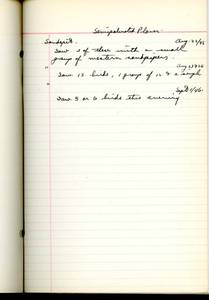 Semipalmated Plover
Sandspit. Aug. 22/46
Saw 2 of these with a small
group of western sandpipers.
" Aug 23/46
Saw 13 birds, 1 group of 12 & a single
" Sept 1/46.
Saw 5 or 6 birds this evening